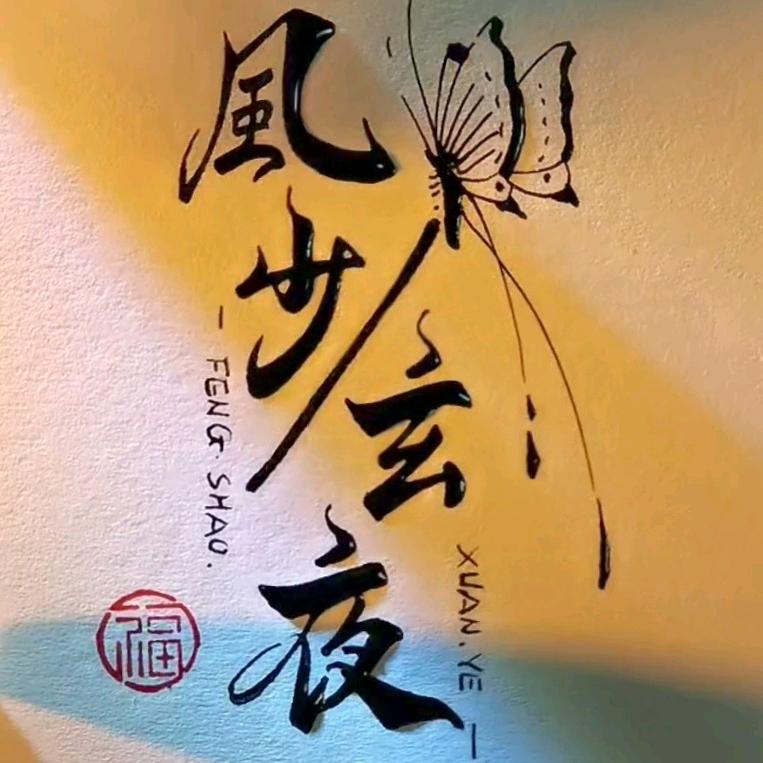 風少
玄夜
- FENG. SHAO.
XUAN. YE -
福